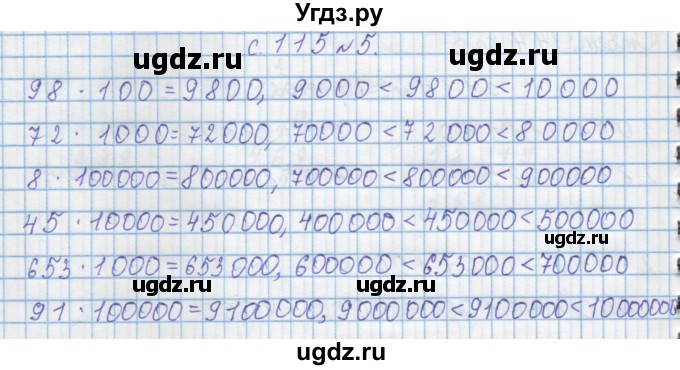 Угдз.ру
ugdz.ru ugdz.ru
с. 115 №5.
98 · 100 = 9800, 9000 < 9800 < 10000
ugdz.ru
72 · 1000 = 72000, 70000 < 72000 < 80000
8 · 100000 = 800000, 700000 < 800000 < 900000
ugdz.ru ugdz.ru
45 · 10000 = 450000, 400000 < 450000 < 500000
ugdz.ru
653 · 1000 = 653000, 600000 < 653000 < 700000
ugdz.ru ugdz.ru
91 · 100000 = 9100000, 9000000 < 9100000 < 10000000
ugdz.ru